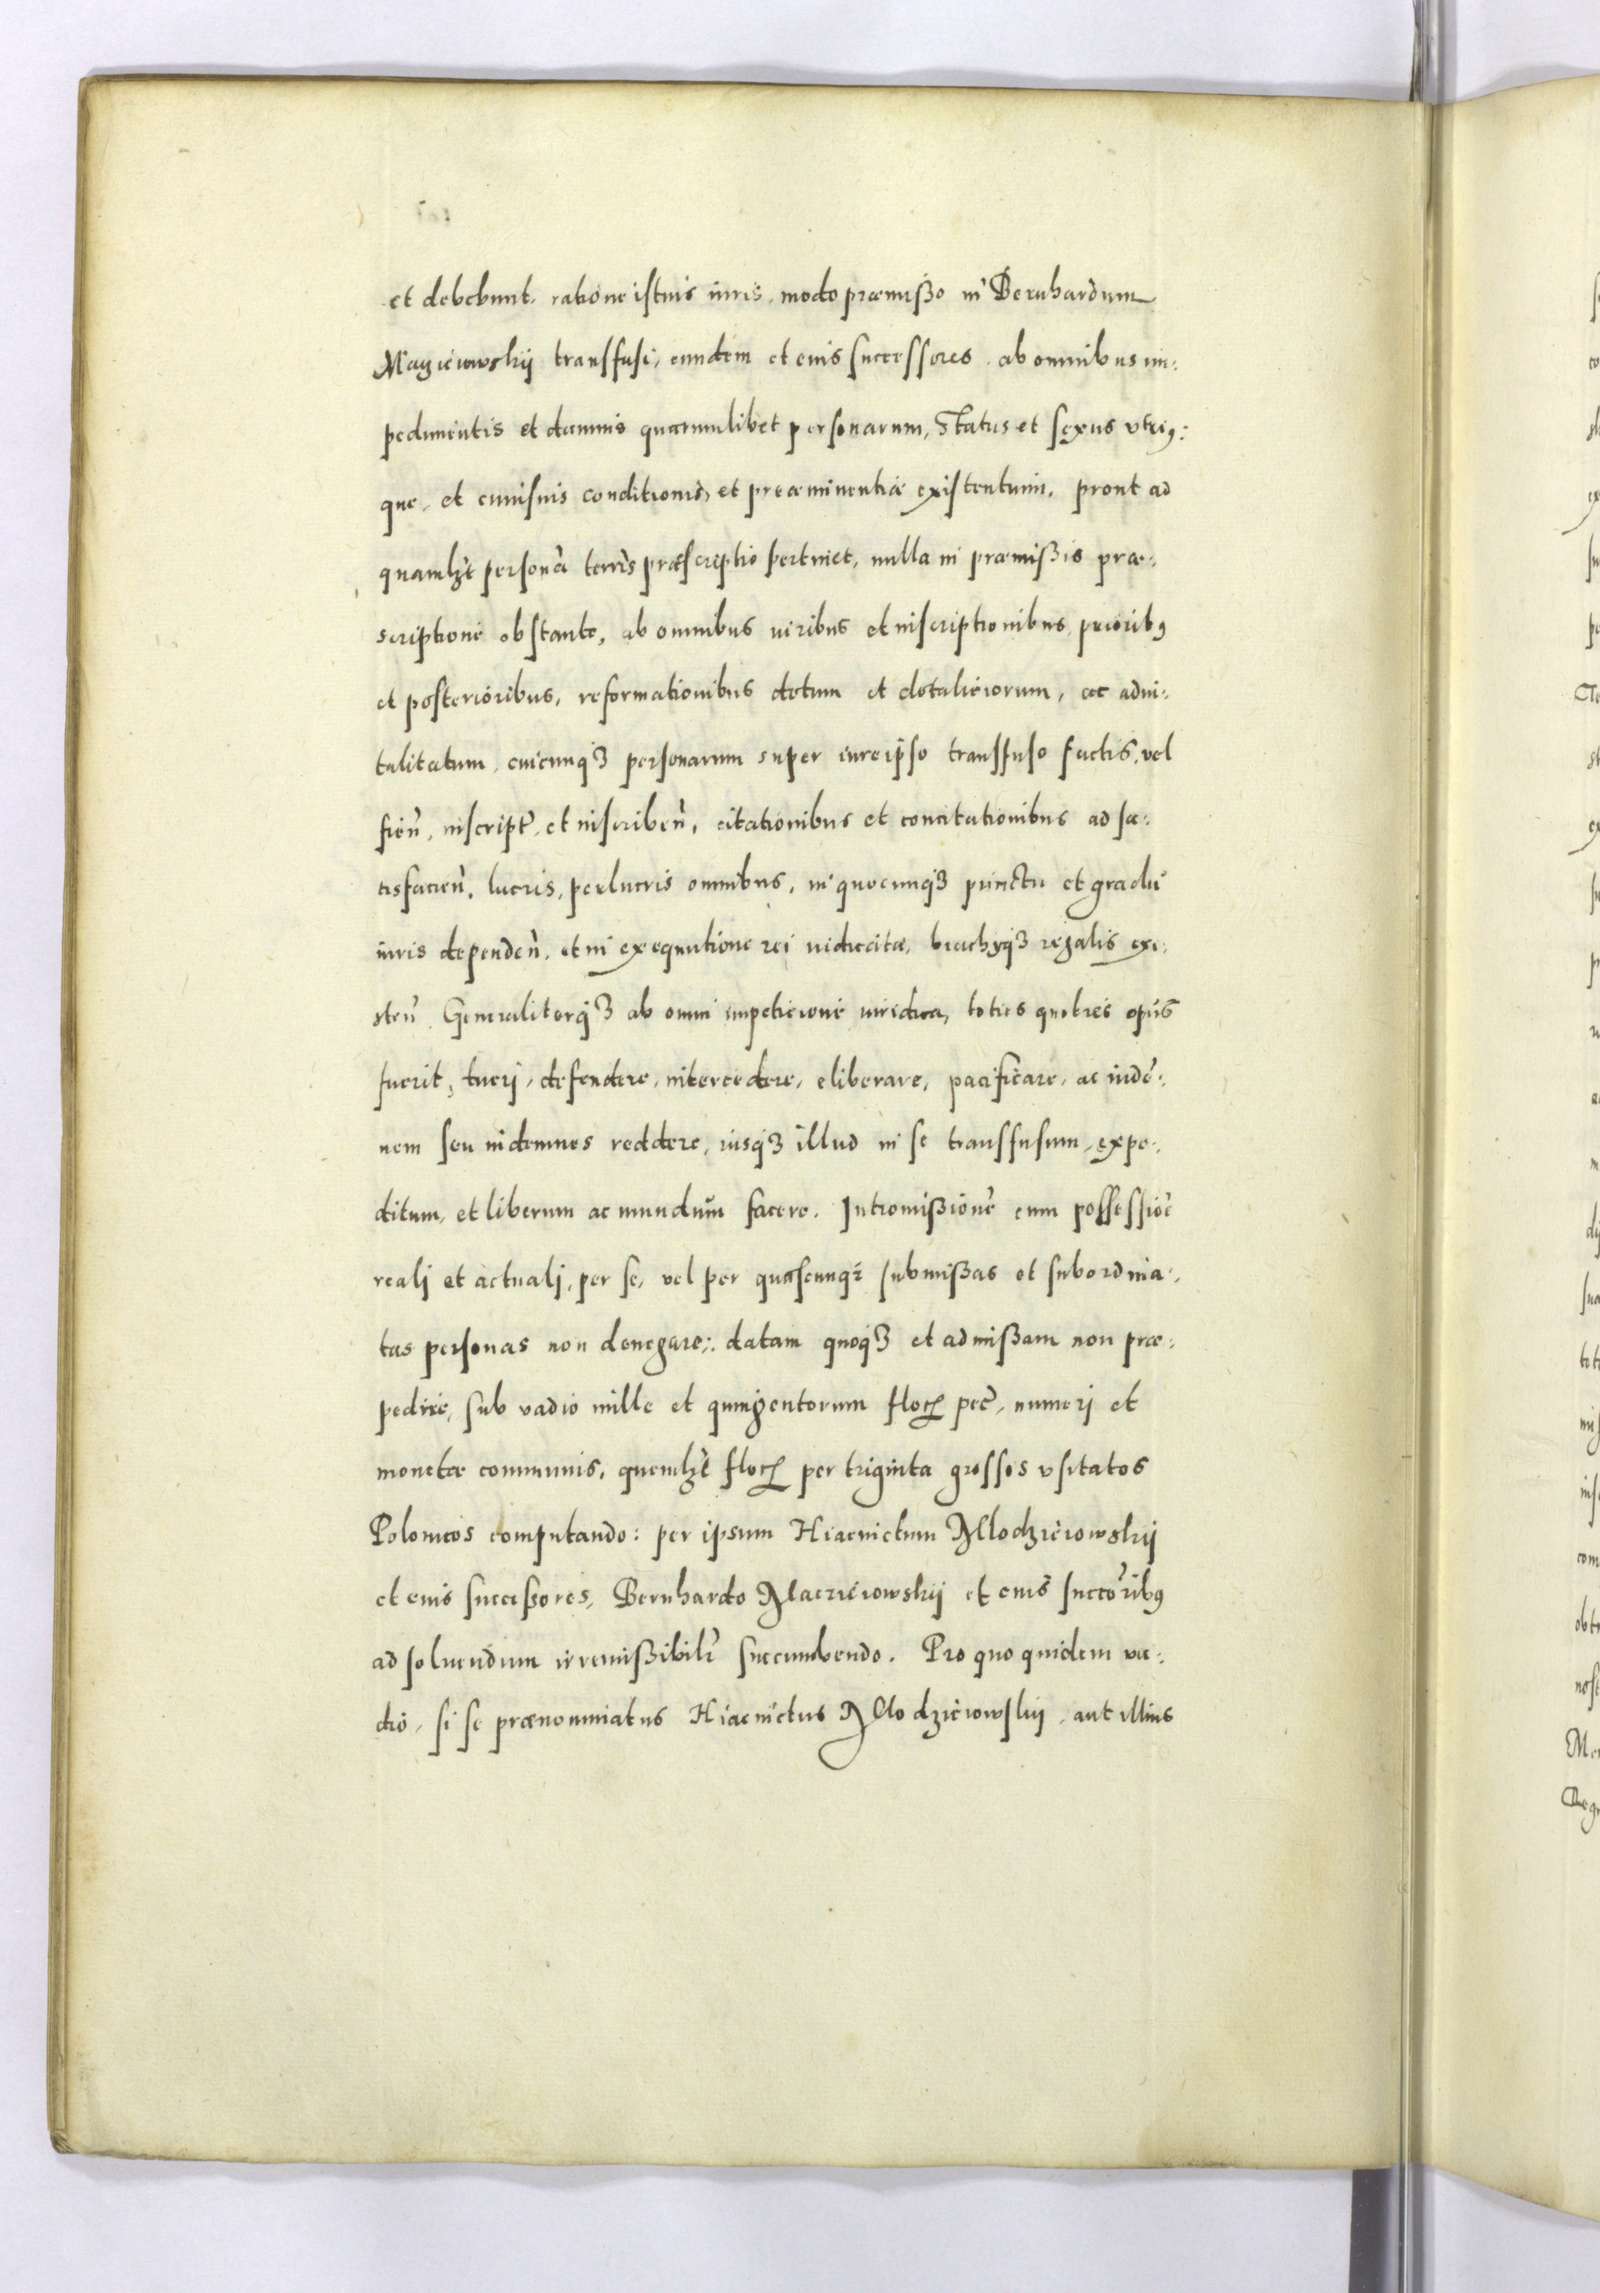 et debebunt, ratione istius iuris, modo præmißo in Bernhardum
Macziéiowskij transfusi, eundem et eius successores, ab omnibus im:
pedimentis et damnis quarumlibet personarum, status et sexus vtriꝰ:
que, et cuiusuis conditionis, et præeminentiæ existentium, prout ad
quamlꝫt personã terrìs præscriptio pertinet, nulla in præmißis præ:
scriptione obstante, ab omnibus iuribus et inscriptionibus prioribꝰ
et posterioribus, reformationibus dotum et dotaliciorum, ac advi:
talitatum, cuicunqꝫ personarum super iure ipso transfuso factis, vel
fieñ, inscript̃, et inscribeñ, citationibus et concitationibus ad sa:
tisfacieñ, lucris, perlucris omnibus, in quocunqꝫ punctu et gradu
iuris dependeñ, et in exequutione rei iudicatæ, brachyqꝫ regalis exi:
steñ. Generaliterqꝫ ab omni impeticione iuridica, toties quoties opus
fuerit, tuerj, defendere, intercedere, eliberare, pacificare, ac indẽ:
nem seu indemnes reddere, iusqꝫ illud in se transfusum, expe:
ditum, et liberum ac mundum facere. Intromißionẽ cum possessiõe
realj et actualj, per se, vel per quascunqꝫ submißas et subordina:
tas personas non denegare: datam quoqꝫ et admißam non præ:
pedire, sub vadio mille et quingentorum floꝝ pec̃, numerj et
monetæ communis, quemlꝫt floꝝ per triginta grossos vsitatos
Polonicos computando: per ipsum Hiacinctum Mlodziéiowskij
et eius succeßores, Bernhardo Macziéiowskij et eius succõribꝰ
ad soluendum irremißibilr̃ succumbendo. Pro quo quidem va:
dio, si se prænominatus Hiacinctus Mlodziéiowskij, aut illius